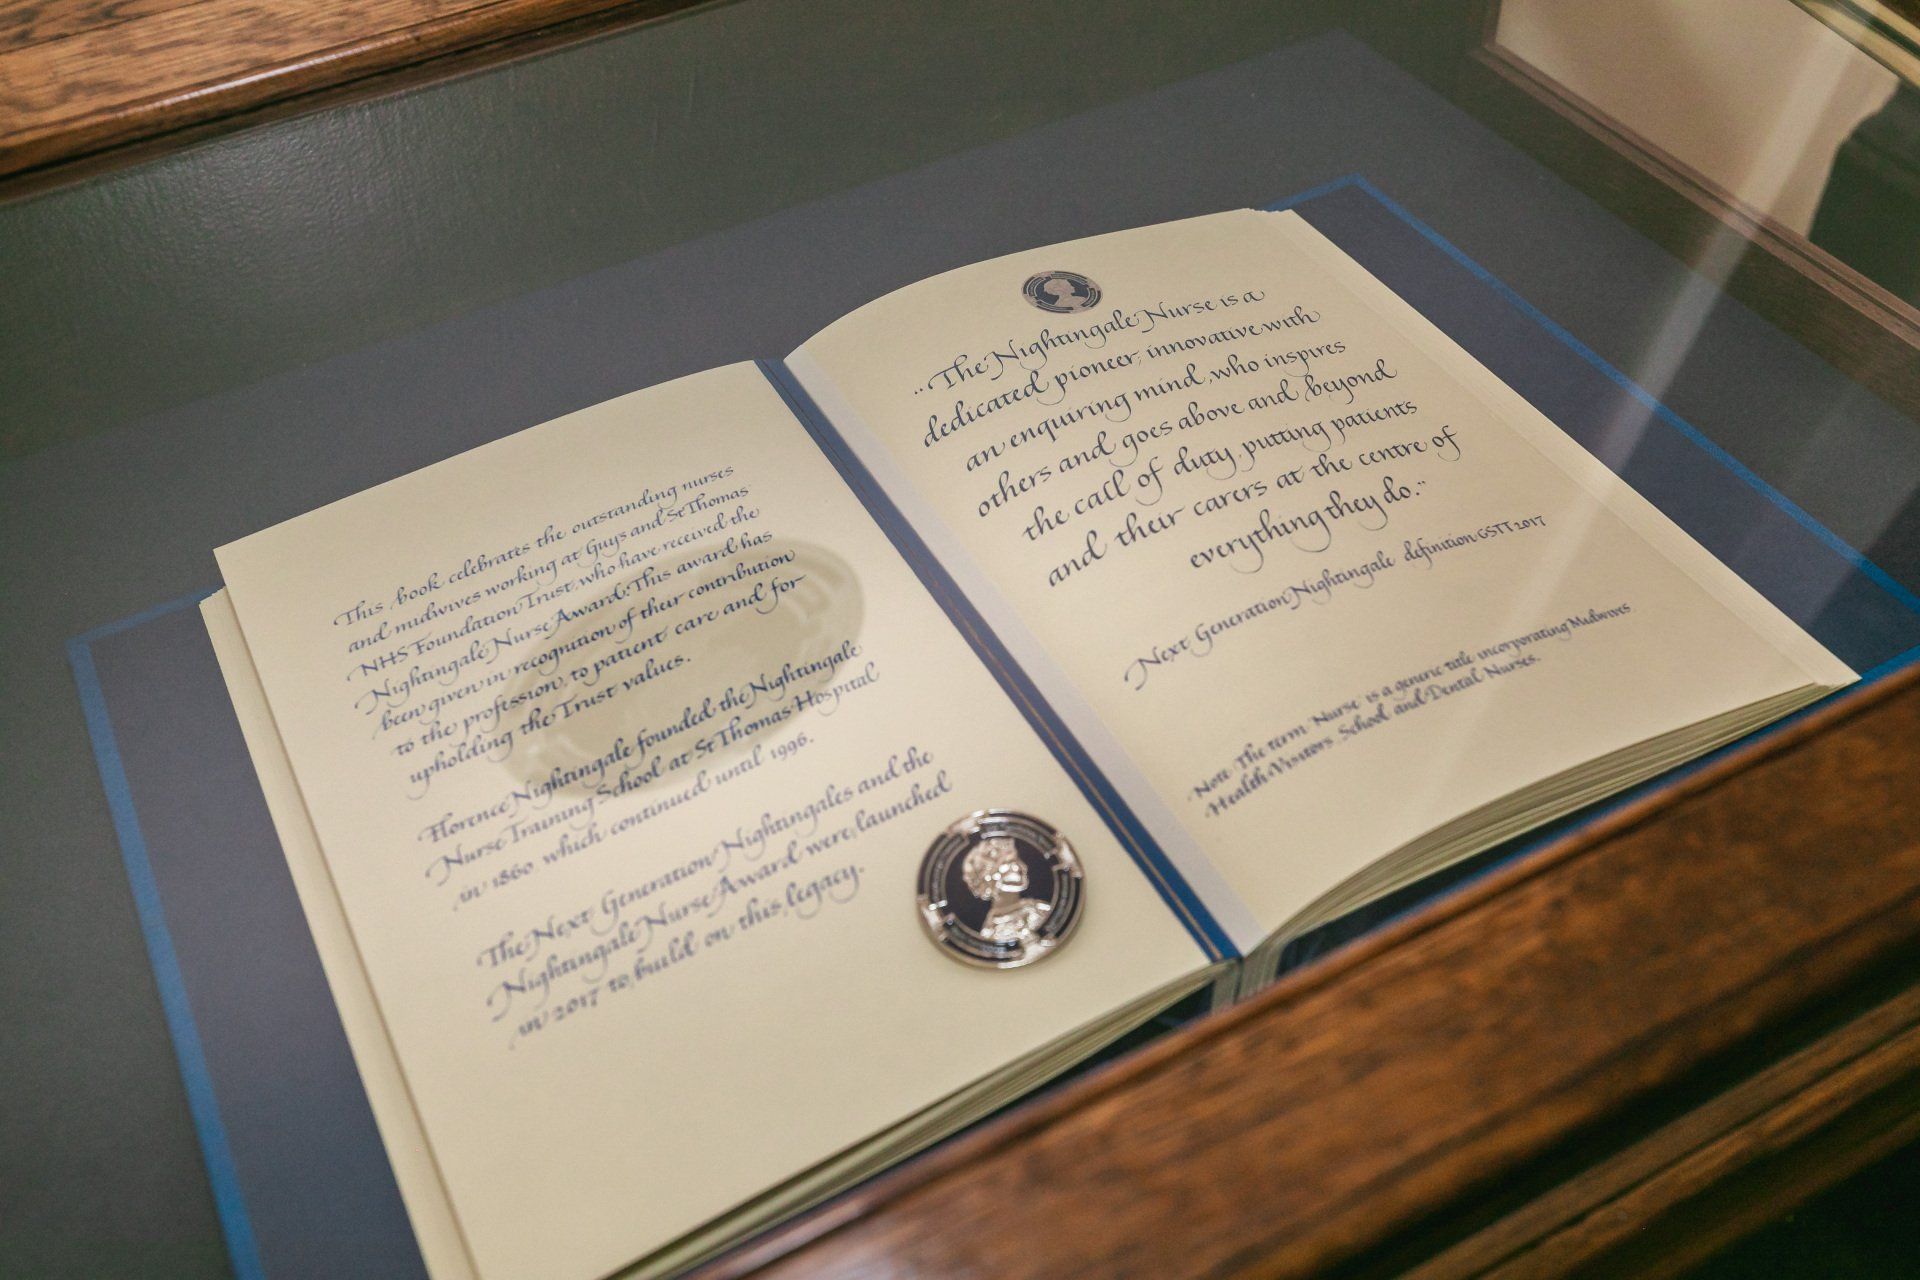 This book celebrates the outstanding nurses
and midwives working at Guys and St Thomas
NHS Foundation Trust, who have received the
Nightingale Nurse Award. This award has
been given in recognition of their contribution
to the profession, to patient care and for
upholding the Trust values.
Florence Nightingale founded the Nightingale
Nurse Training School at St Thomas Hospital
in 1860 which continued until 1996.
The Next Generation Nightingales and the
Nightingale Nurse Award were launched
in 2017 to build on this legacy.
"The Nightingale Nurse is a
dedicated pioneer, innovative with
an enquiring mind, who inspires
others and goes above and beyond
the call of duty, putting patients
and their carers at the centre of
everything they do."
Next Generation Nightingale definition GSTT 2017
Note: The term 'Nurse' is a generic title incorporating Midwives
Health Visitors, School and Dental Nurses.